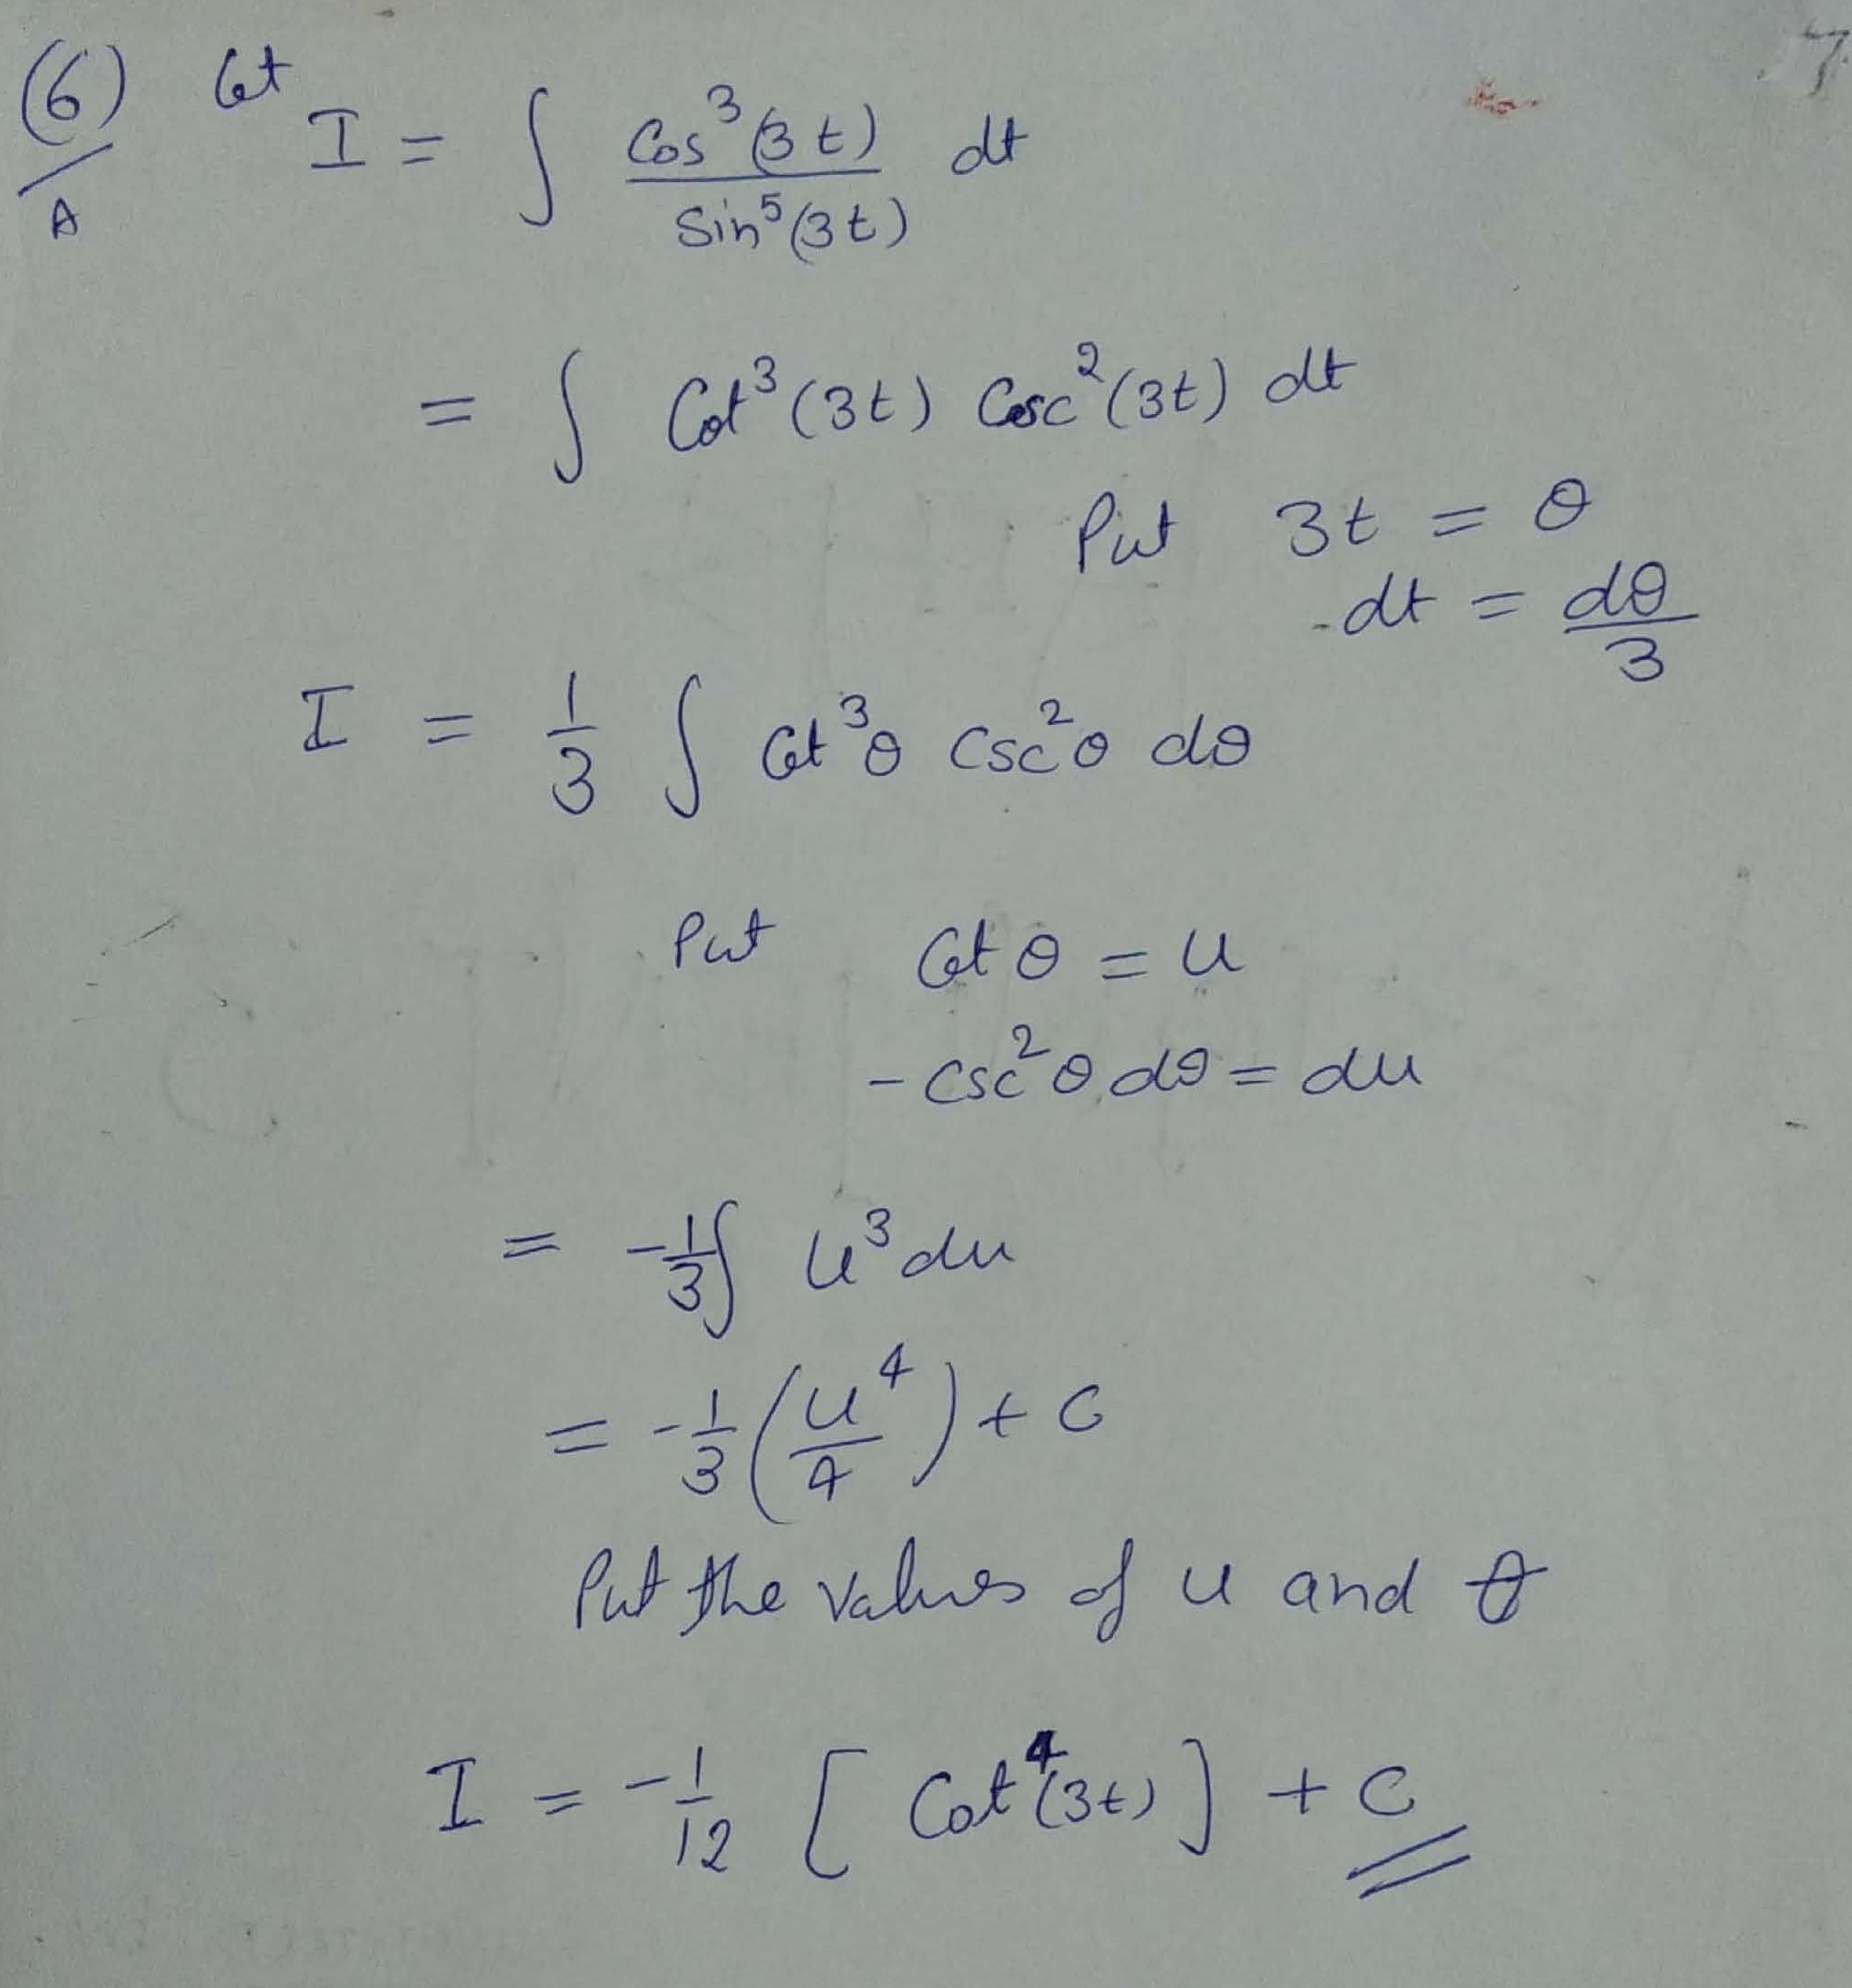 (6)/A Let I = ∫ Cos³(3t) / Sin⁵(3t) dt
= ∫ Cot³(3t) Cosc²(3t) dt
Put 3t = θ
dt = dθ/3
I = 1/3 ∫ Cot³θ Csc²θ dθ
Put Cot θ = u
- Csc²θ dθ = du
= -1/3 ∫ u³ du
= -1/3 (u⁴/4) + C
Put the values of u and θ
I = -1/12 [ Cot⁴(3t) ] + C